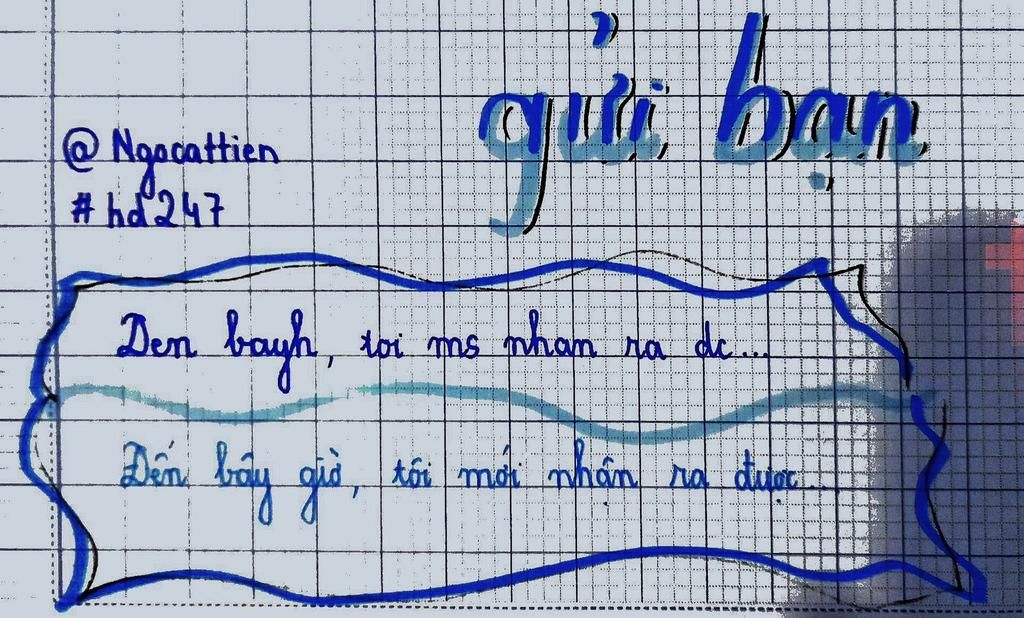 gửi bạn
@ Ngocattien
# hd247
Den bayh, toi ms nhan ra dc...
Đến bây giờ, tôi mới nhận ra được...